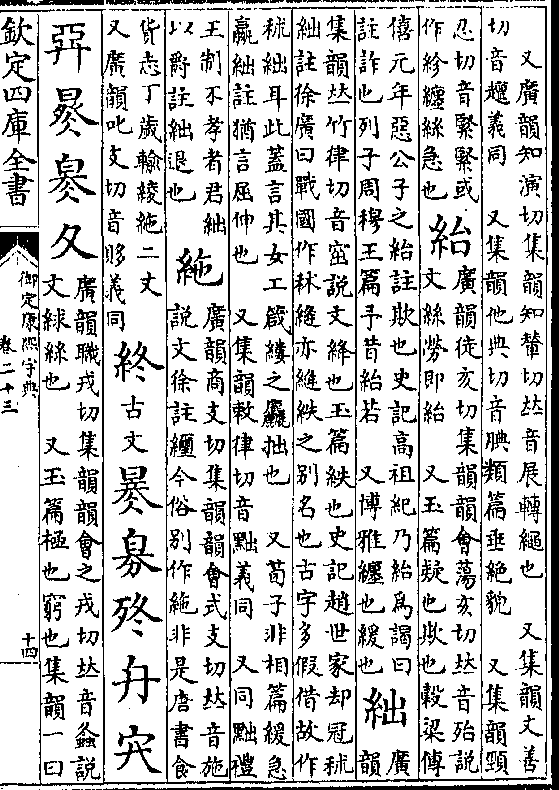 又廣韻知演切集韻知輦切𠀤音展轉繩也　又集韻丈善
切音𧾍義同　又集韻他典切音腆類篇垂絶貌　又集韻頸
忍切音緊緊或
作紾纏絲急也
紿
廣韻徒亥切集韻韻會蕩亥切𠀤音殆說
文絲勞即紿　又玉篇疑也欺也榖梁傳
僖元年惡公子之紿註欺也史記高祖紀乃紿爲謁曰
註詐也列子周穆王篇予昔紿若　又博雅纏也緩也
絀
廣
韻
集韻𠀤竹律切音窋說文絳也玉篇紩也史記趙世家却冠秫
絀註徐廣曰戰國作秫縫亦縫紩之别名也古字多假借故作
秫絀耳此蓋言其女工鍼縷之麤拙也　又荀子非相篇緩急
嬴絀註猶言屈伸也　又集韻敕律切音黜義同　又同黜禮
王制不孝者君絀
以爵註絀退也
䌳
廣韻商支切集韻韻會式支切𠀤音施
說文徐註纚今俗别作䌳非是唐書食
貨志丁歲輸綾䌳二丈
又廣韻叱支切音眵義同
終
古文
𣊂
𠔾
𣧩
𠂂
㝐
𢍐
𣊂
𦤆
夂
廣韻職戎切集韻韻會之戎切𠀤音螽說
文絿絲也　又玉篇極也窮也集韻一曰
欽定四庫全書
御定康熙字典
卷二十三
十四